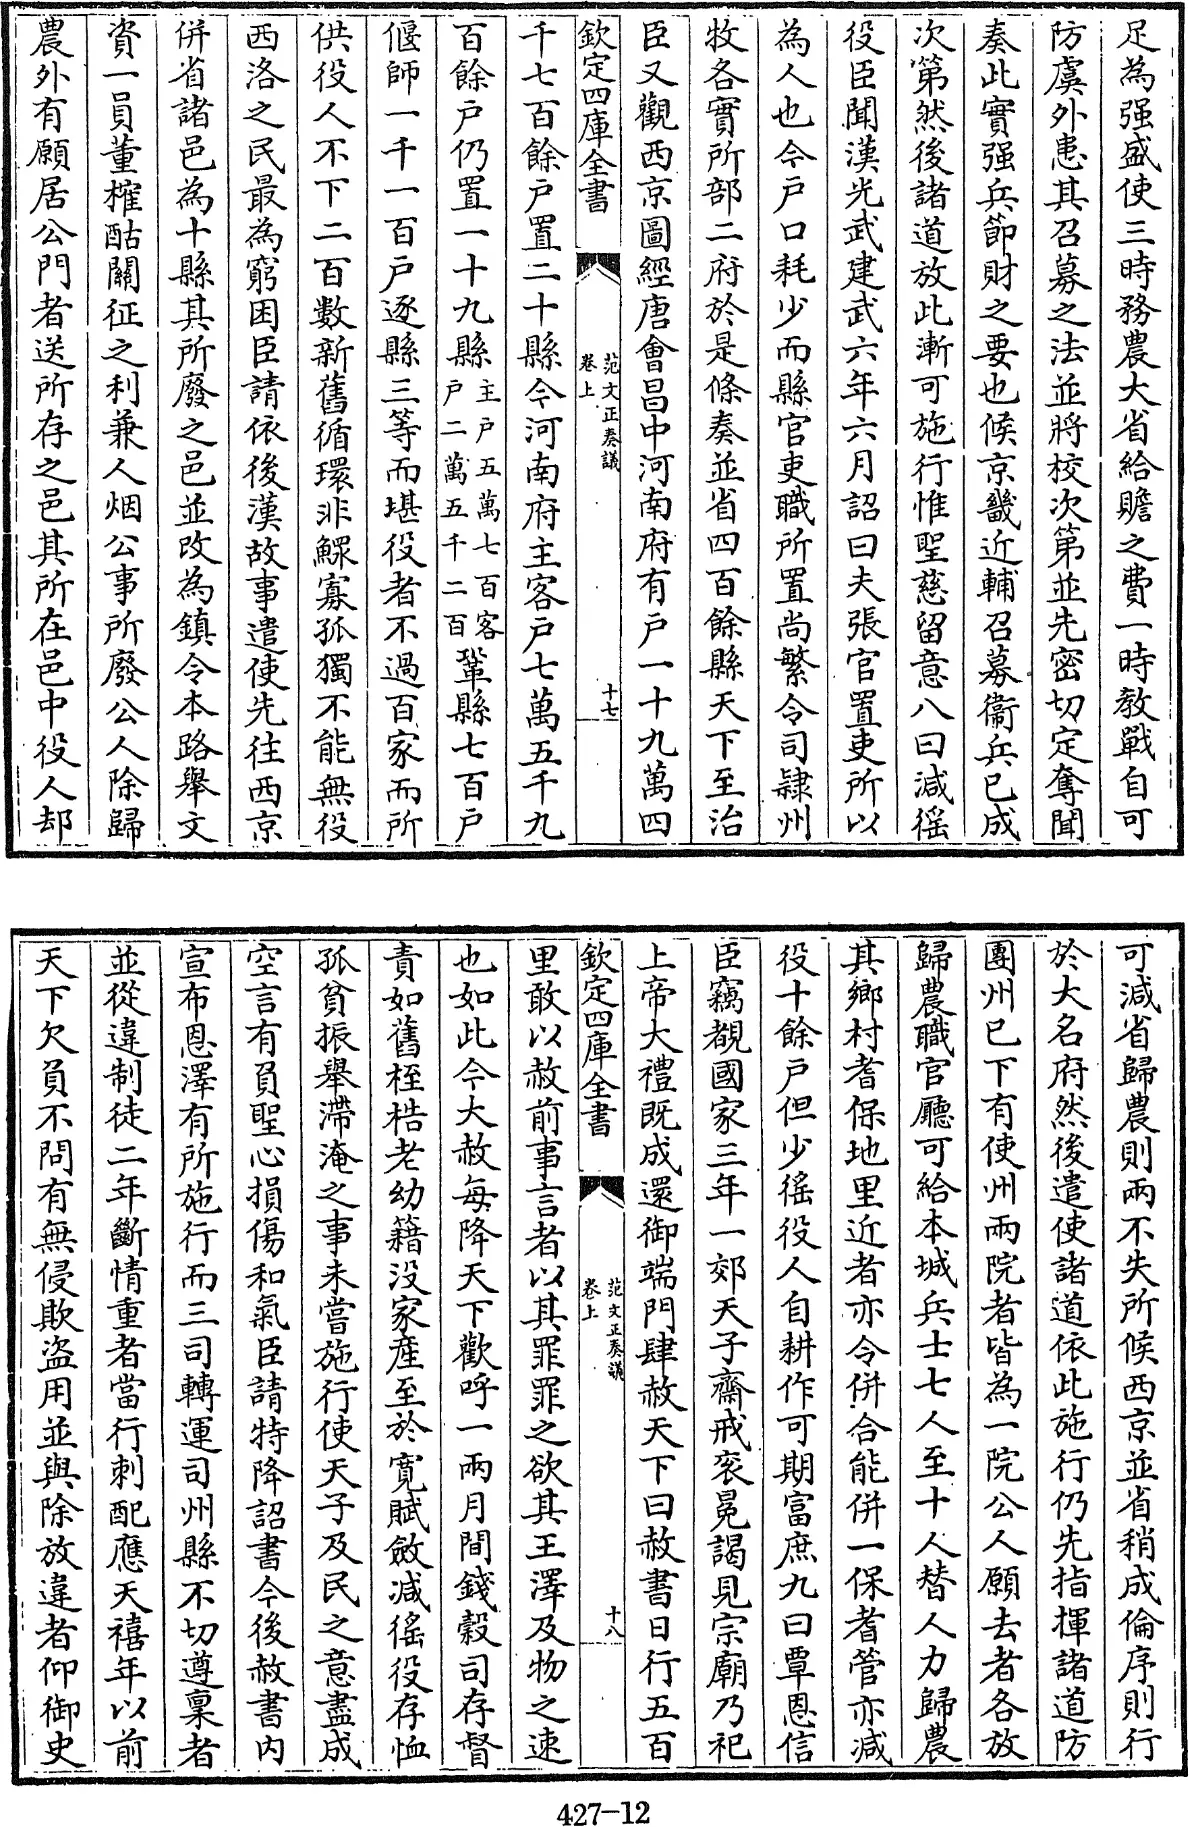 足為强盛使三時務農大省給贍之費一時教戰自可
防虞外患其召募之法並將校次第並先密切定奪聞
奏此實强兵節財之要也候京畿近輔召募衞兵已成
次第然後諸道放此漸可施行惟聖慈留意八曰減徭
役臣聞漢光武建武六年六月詔曰夫張官置吏所以
為人也今戸口耗少而縣官吏職所置尚繁令司隷州
牧各實所部二府於是條奏並省四百餘縣天下至治
臣又觀西京圖經唐會昌中河南府有戸一十九萬四
欽定四庫全書
范文正奏議
卷上
十七
千七百餘戸置二十縣今河南府主客戸七萬五千九
百餘戸仍置一十九縣主戸五萬七百客戸二萬五千二百鞏縣七百戸
偃師一千一百戸逐縣三等而堪役者不過百家而所
供役人不下二百數新舊循環非鰥寡孤獨不能無役
西洛之民最為窮困臣請依後漢故事遣使先往西京
併省諸邑為十縣其所廢之邑並改為鎮令本路舉文
資一員董榷酤關征之利兼人烟公事所廢公人除歸
農外有願居公門者送所存之邑其所在邑中役人却
可減省歸農則兩不失所候西京並省稍成倫序則行
於大名府然後遣使諸道依此施行仍先指揮諸道防
團州已下有使州兩院者皆為一院公人願去者各放
歸農職官廳可給本城兵士七人至十人替人力歸農
其鄉村耆保地里近者亦令併合能併一保耆管亦減
役十餘戸但少徭役人自耕作可期富庶九曰覃恩信
臣竊覩國家三年一郊天子齋戒衮冕謁見宗廟乃祀
上帝大禮既成還御端門肆赦天下曰赦書日行五百
欽定四庫全書
范文正奏議
卷上
十八
里敢以赦前事言者以其罪罪之欲其王澤及物之速
也如此今大赦每降天下歡呼一兩月間錢穀司存督
責如舊桎梏老幼籍没家産至於寛賦斂減徭役存恤
孤貧振舉滯淹之事未嘗施行使天子及民之意盡成
空言有負聖心損傷和氣臣請特降詔書今後赦書内
宣布恩澤有所施行而三司轉運司州縣不切遵稟者
並從違制徒二年斷情重者當行刺配應天禧年以前
天下欠負不問有無侵欺盜用並與除放違者仰御史
427-12